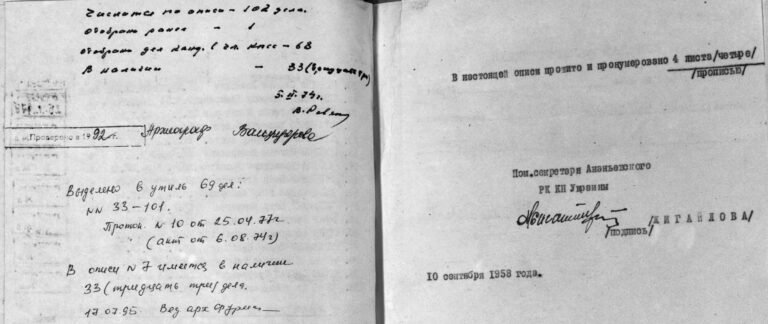 Числится по описи – 102 дела.
Отобрано ранее – 1
Отобрано дел
– 68
В наличии – 33 (тридцать три)
5. 74г.
Проверено в 1992 г. Археограф
Выделено в утиль 69 дел:
NN 33–101.
Проток. N 10 от 25.04.77г
(акт от 6.08.74г)
В описи N 7 имеется в наличии
33 (тридцать три) дела.
17.07.95 Вед. арх.
В настоящей описи прошито и пронумеровано 4 листа/четыре/
/прописью/
Пом.секретаря Ананьевского
РК КП Украины
/ЖИГАЙЛОВА/
/подпись/
10 сентября 1958 года.